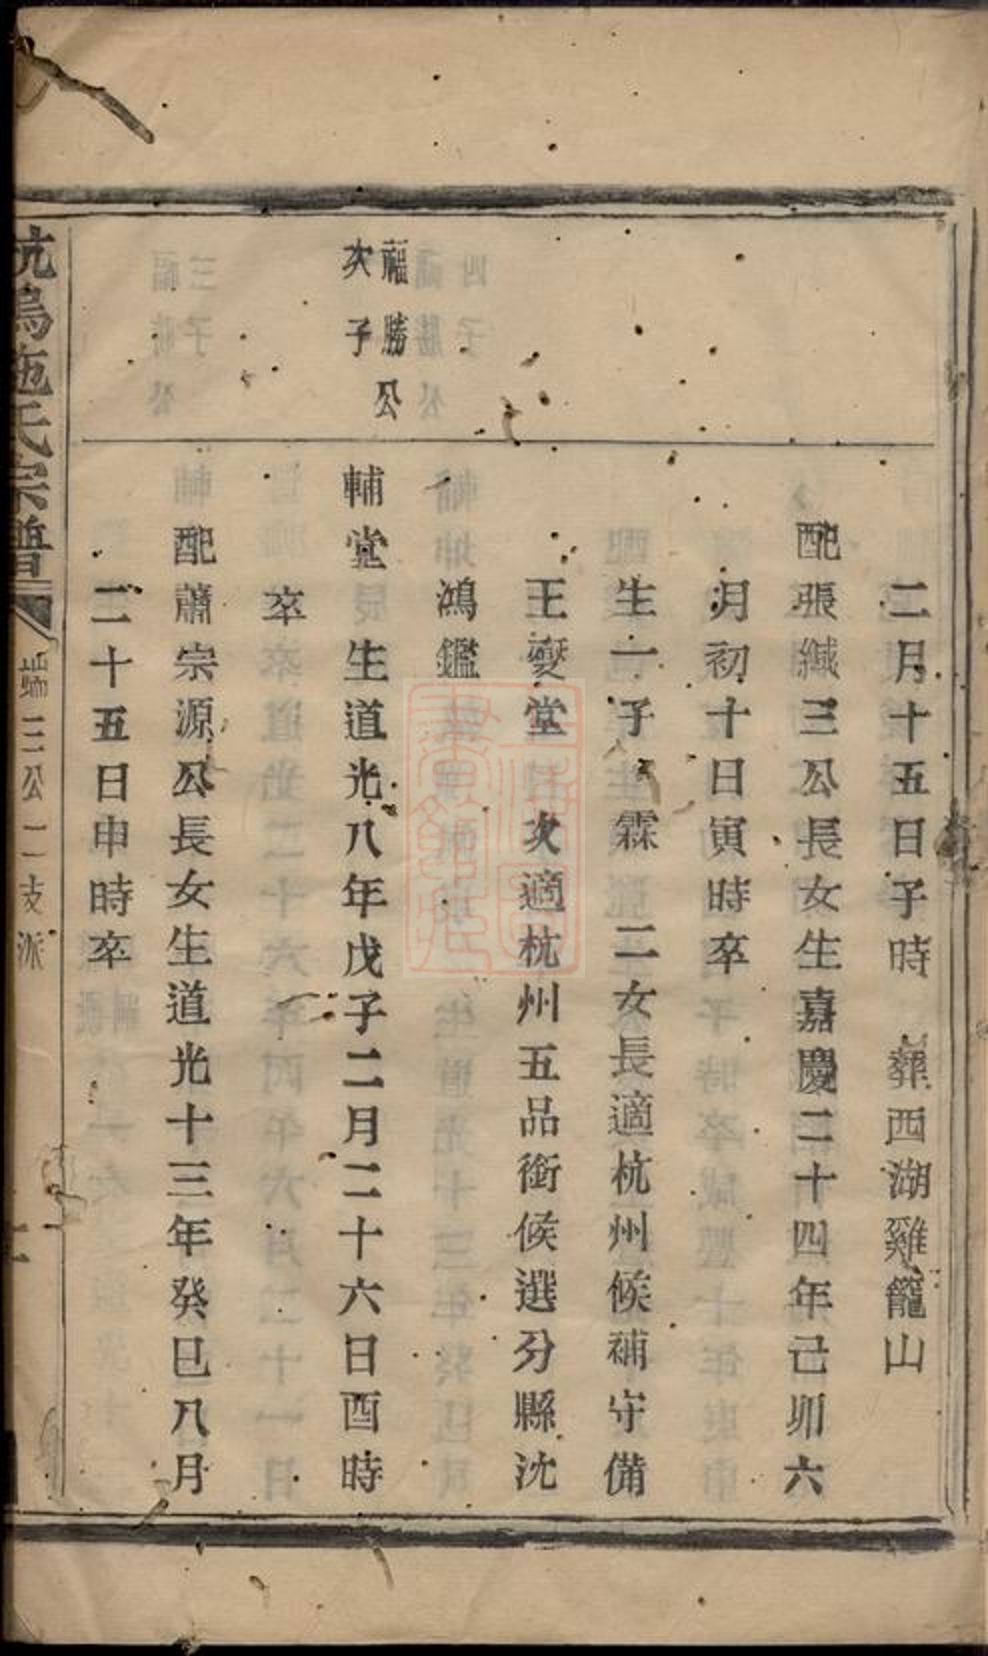 二月十五日子時 葬西湖雞籠山
配張緘三公長女生嘉慶二十四年己卯六
月初十日寅時卒
生一子霖 二女長適杭州候補守備
王燮堂 次適杭州五品銜候選分縣沈
鴻鑑
福勝公
次子
輔堂 生道光八年戊子二月二十六日酉時
卒
配蕭宗源公長女生道光十三年癸巳八月
二十五日申時卒
杭烏施氏宗譜 端三公二支派